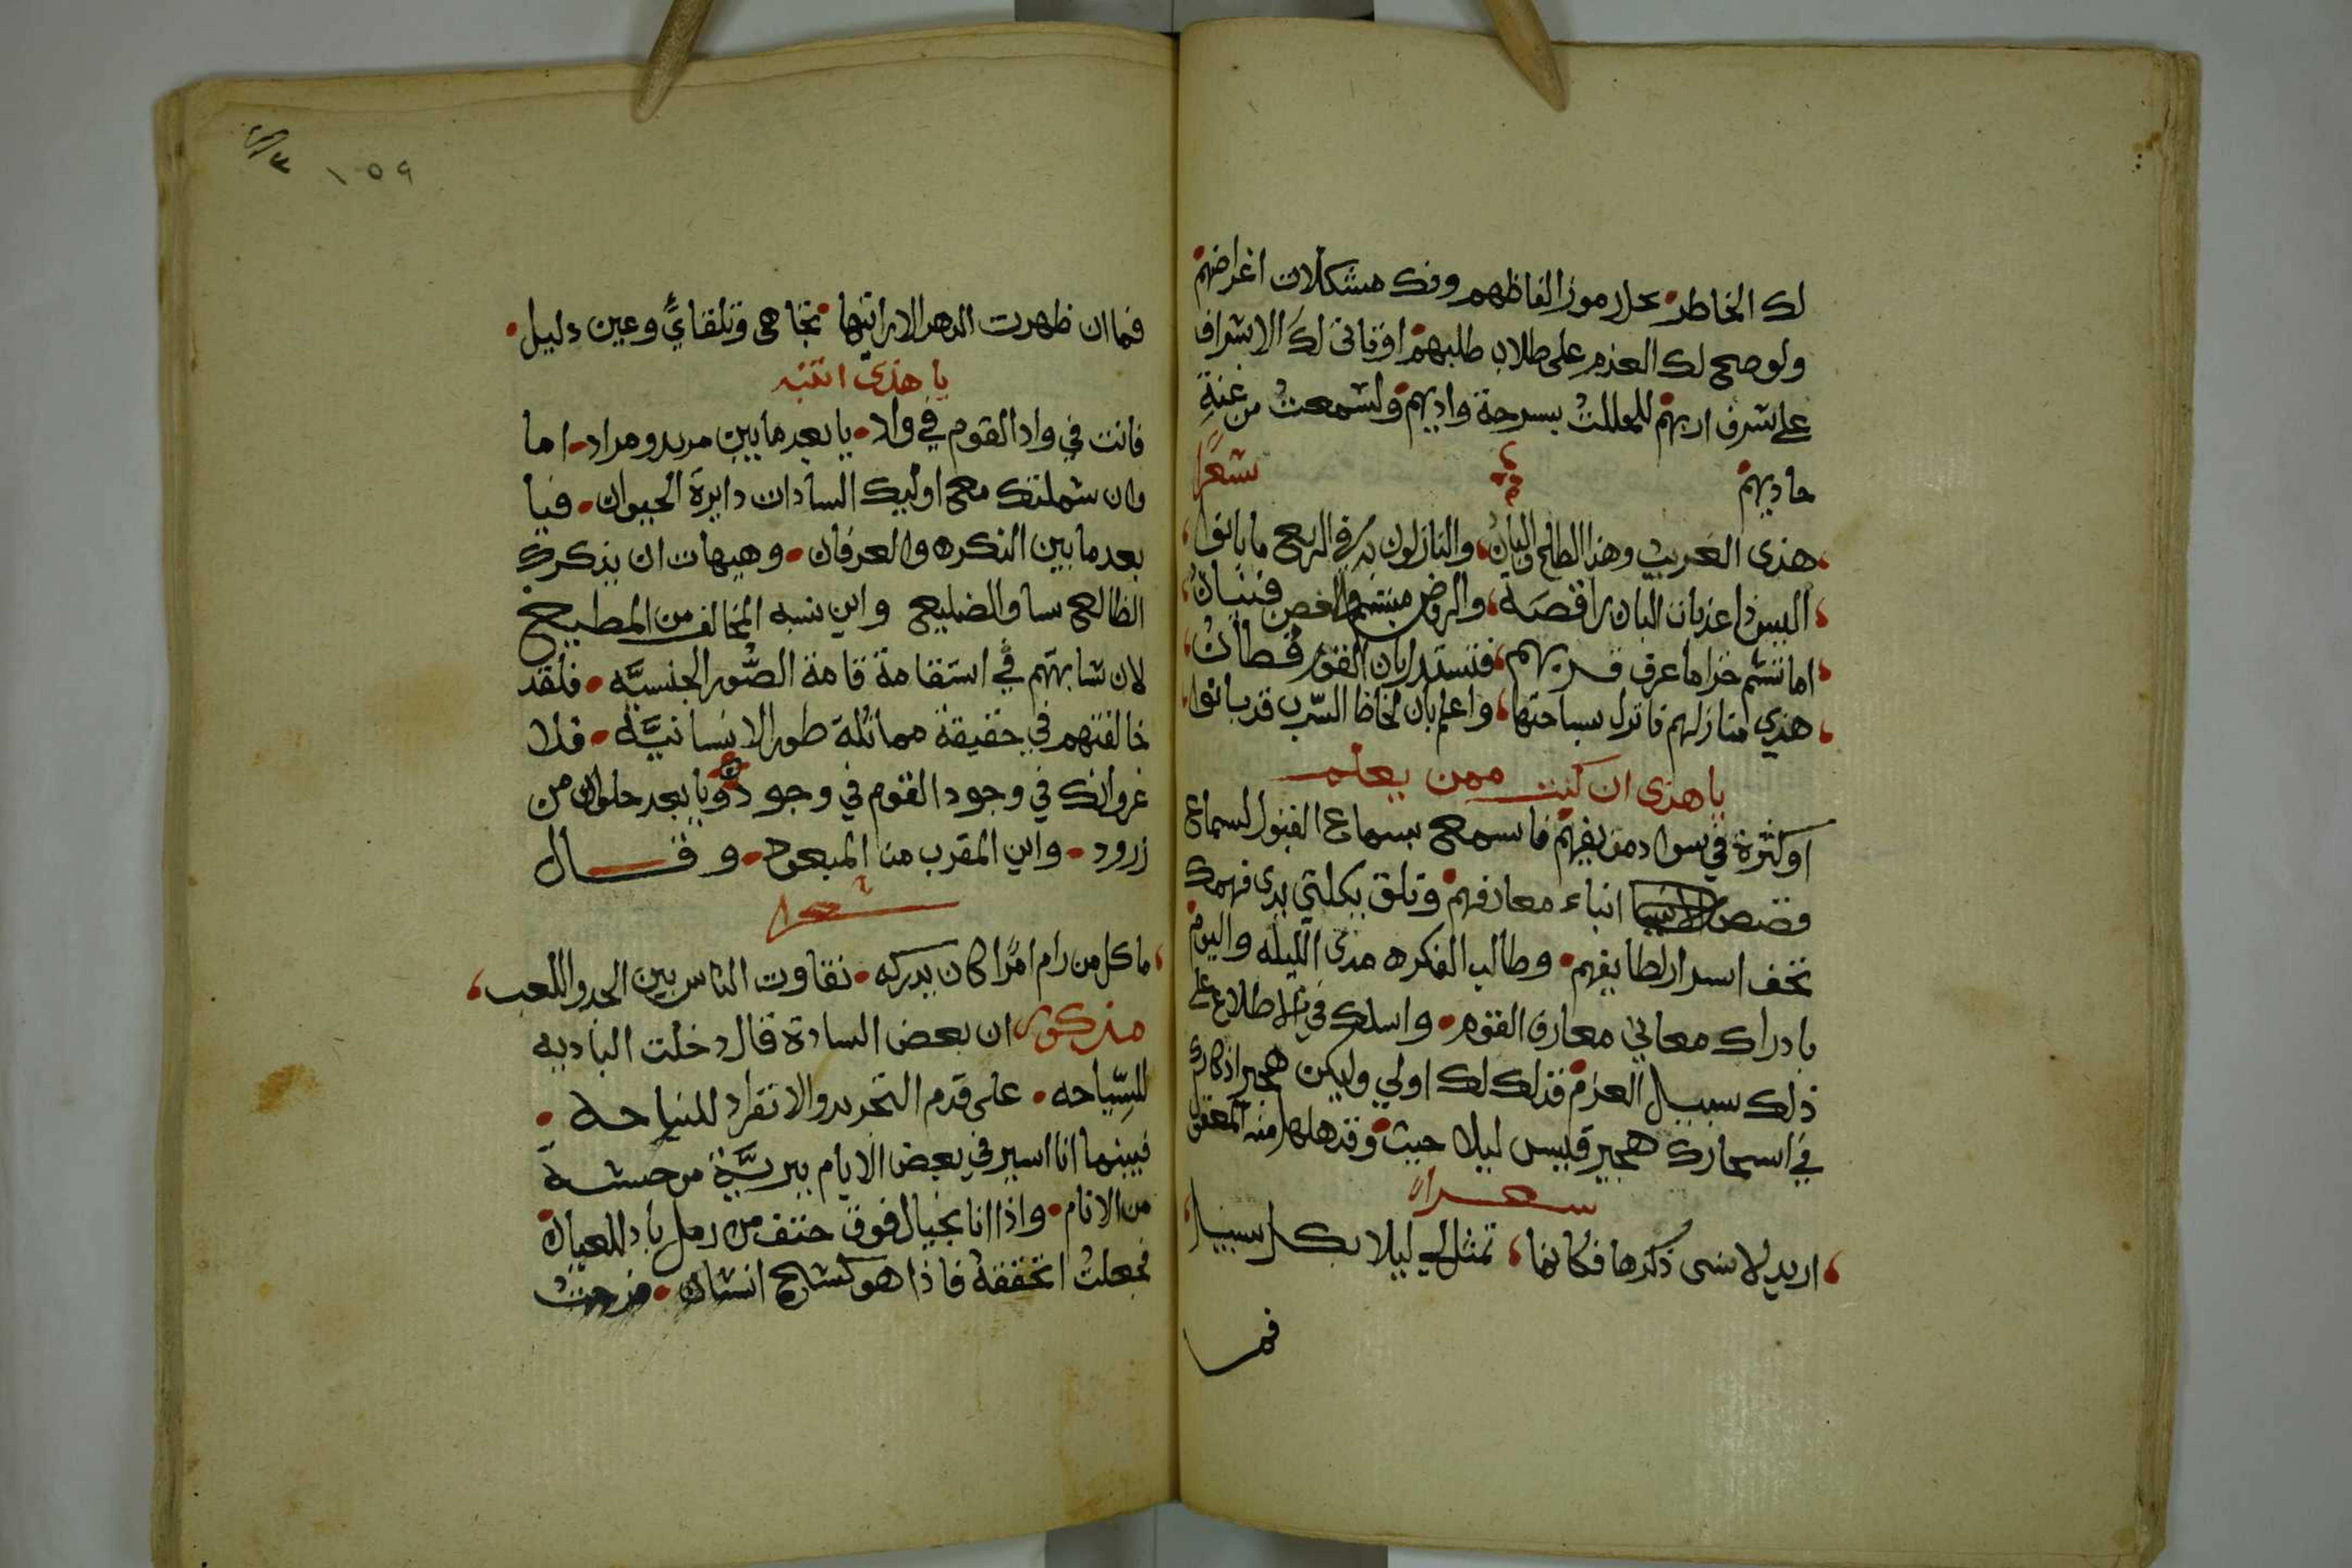 لك الخاطر بحلا رموز الفاظهم وفك مشكلات اغراضهم
ولو صح لك العزم على طلاب طلبهم اوفاتى لك الاشراف
على شرف اربهم للمللت بسرحة واديهم ولسمعت من غنة
حاديهم شعرا
هذى العريب وهذا الطلح والبان والنازلون به فى الربع ما بانوا
اليس ذا عذبات البان راقصة والروض مبتسم والغصن فتيان
اما تشم خزاما عرف قربهم
هذي منازلهم فانزل بساحتها واعلم بان لحاظ السرب قد بانوا
يا هذى ان كنت ممن يعلم
او كثرة في سواد من يفهم فاسمع بسماع القبول لسماع
قصص انباء معارفهم وتلق بكلتي يدى فهمك
تحف اسرار لطايفهم وطالب الفكره مدى الليله واليوم
بادراك معاني معارف القوم واسلك في الاطلاع على
ذلك سبيل العزم فذلك لك اولي وليكن هجير اذكارك
في اسحارك هجير قيس ليلا حيث وقد هلها منه المعقول
شعرا
اريد لانسى ذكرها فكانما تمثل لي ليلا بكل سبيل
فما
١٥٩
فما ان ظهرت الدهر الا رايتها تجاهى وتلقاي وعين دليل
يا هذى انتبه
فانت في واد القوم في واد يا بعد ما بين مريد ومراد اما
وان شملتك مع اوليك السادات دايرة الحيوان فيا
بعد ما بين النكره والعرفان وهيهات ان يذكرك
الظالع ساو الضليع واين نسبه المخالف من المطيع
لان شابهتهم في استقامة قامة الصور الجنسيه فلقد
خالفتهم في حقيقة مماثلة طور الانسانيه فلا
غروانك في وجود القوم في وجود ويا بعد حلوان من
زرود واين المقرب من المبعود وقال
شعرا
ما كل من رام امرا كان يدركه تفاوت الناس بين الجد واللعب
مذكور ان بعض السادة قال دخلت الباديه
للسياحه على قدم التجريد والانفراد للنياحه
فبينما انا اسير في بعض الايام ببرية موحشة
من الانام واذا انا بخيال فوق حتف من رمل باد للعيان
فجعلت اتحققه فاذا هو كشبح انسان فزحت